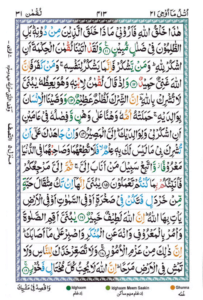 اُتْلُ مَآ اُوْحِيَ ٢١ ٤١٣ لُقْمٰن ٣١
هٰذَا خَلْقُ اللّٰهِ فَاَرُوْنِيْ مَاذَا خَلَقَ الَّذِيْنَ مِنْ دُوْنِهٖ ؕ بَلِ
الظّٰلِمُوْنَ فِيْ ضَلٰلٍ مُّبِيْنٍ ۝ وَلَقَدْ اٰتَيْنَا لُقْمٰنَ الْحِكْمَةَ اَنِ
اشْكُرْ لِلّٰهِ ؕ وَمَنْ يَّشْكُرْ فَاِنَّمَا يَشْكُرُ لِنَفْسِهٖ ۚ وَمَنْ كَفَرَ فَاِنَّ
اللّٰهَ غَنِيٌّ حَمِيْدٌ ۝ وَاِذْ قَالَ لُقْمٰنُ لِابْنِهٖ وَهُوَ يَعِظُهٗ يٰبُنَيَّ
لَا تُشْرِكْ بِاللّٰهِ ؔؕ اِنَّ الشِّرْكَ لَظُلْمٌ عَظِيْمٌ ۝ وَوَصَّيْنَا الْاِنْسَانَ
بِوَالِدَيْهِ ۚ حَمَلَتْهُ اُمُّهٗ وَهْنًا عَلٰى وَهْنٍ وَّفِصٰلُهٗ فِيْ عَامَيْنِ
اَنِ اشْكُرْ لِيْ وَلِوَالِدَيْكَ ؕ اِلَيَّ الْمَصِيْرُ ۝ وَاِنْ جَاهَدٰكَ عَلٰٓى اَنْ
تُشْرِكَ بِيْ مَا لَيْسَ لَكَ بِهٖ عِلْمٌ فَلَا تُطِعْهُمَا وَصَاحِبْهُمَا فِي الدُّنْيَا
مَعْرُوْفًا ؗ وَّاتَّبِعْ سَبِيْلَ مَنْ اَنَابَ اِلَيَّ ۚ ثُمَّ اِلَيَّ مَرْجِعُكُمْ
فَاُنَبِّئُكُمْ بِمَا كُنْتُمْ تَعْمَلُوْنَ ۝ يٰبُنَيَّ اِنَّهَآ اِنْ تَكُ مِثْقَالَ حَبَّةٍ
مِّنْ خَرْدَلٍ فَتَكُنْ فِيْ صَخْرَةٍ اَوْ فِي السَّمٰوٰتِ اَوْ فِي الْاَرْضِ
يَاْتِ بِهَا اللّٰهُ ؕ اِنَّ اللّٰهَ لَطِيْفٌ خَبِيْرٌ ۝ يٰبُنَيَّ اَقِمِ الصَّلٰوةَ
وَاْمُرْ بِالْمَعْرُوْفِ وَانْهَ عَنِ الْمُنْكَرِ وَاصْبِرْ عَلٰى مَآ اَصَابَكَ ؕ
اِنَّ ذٰلِكَ مِنْ عَزْمِ الْاُمُوْرِ ۝ وَلَا تُصَعِّرْ خَدَّكَ لِلنَّاسِ وَلَا
تَمْشِ فِي الْاَرْضِ مَرَحًا ؕ اِنَّ اللّٰهَ لَا يُحِبُّ كُلَّ مُخْتَالٍ فَخُوْرٍ ۝
Idghaam Idghaam Meem Saakin Ghunna